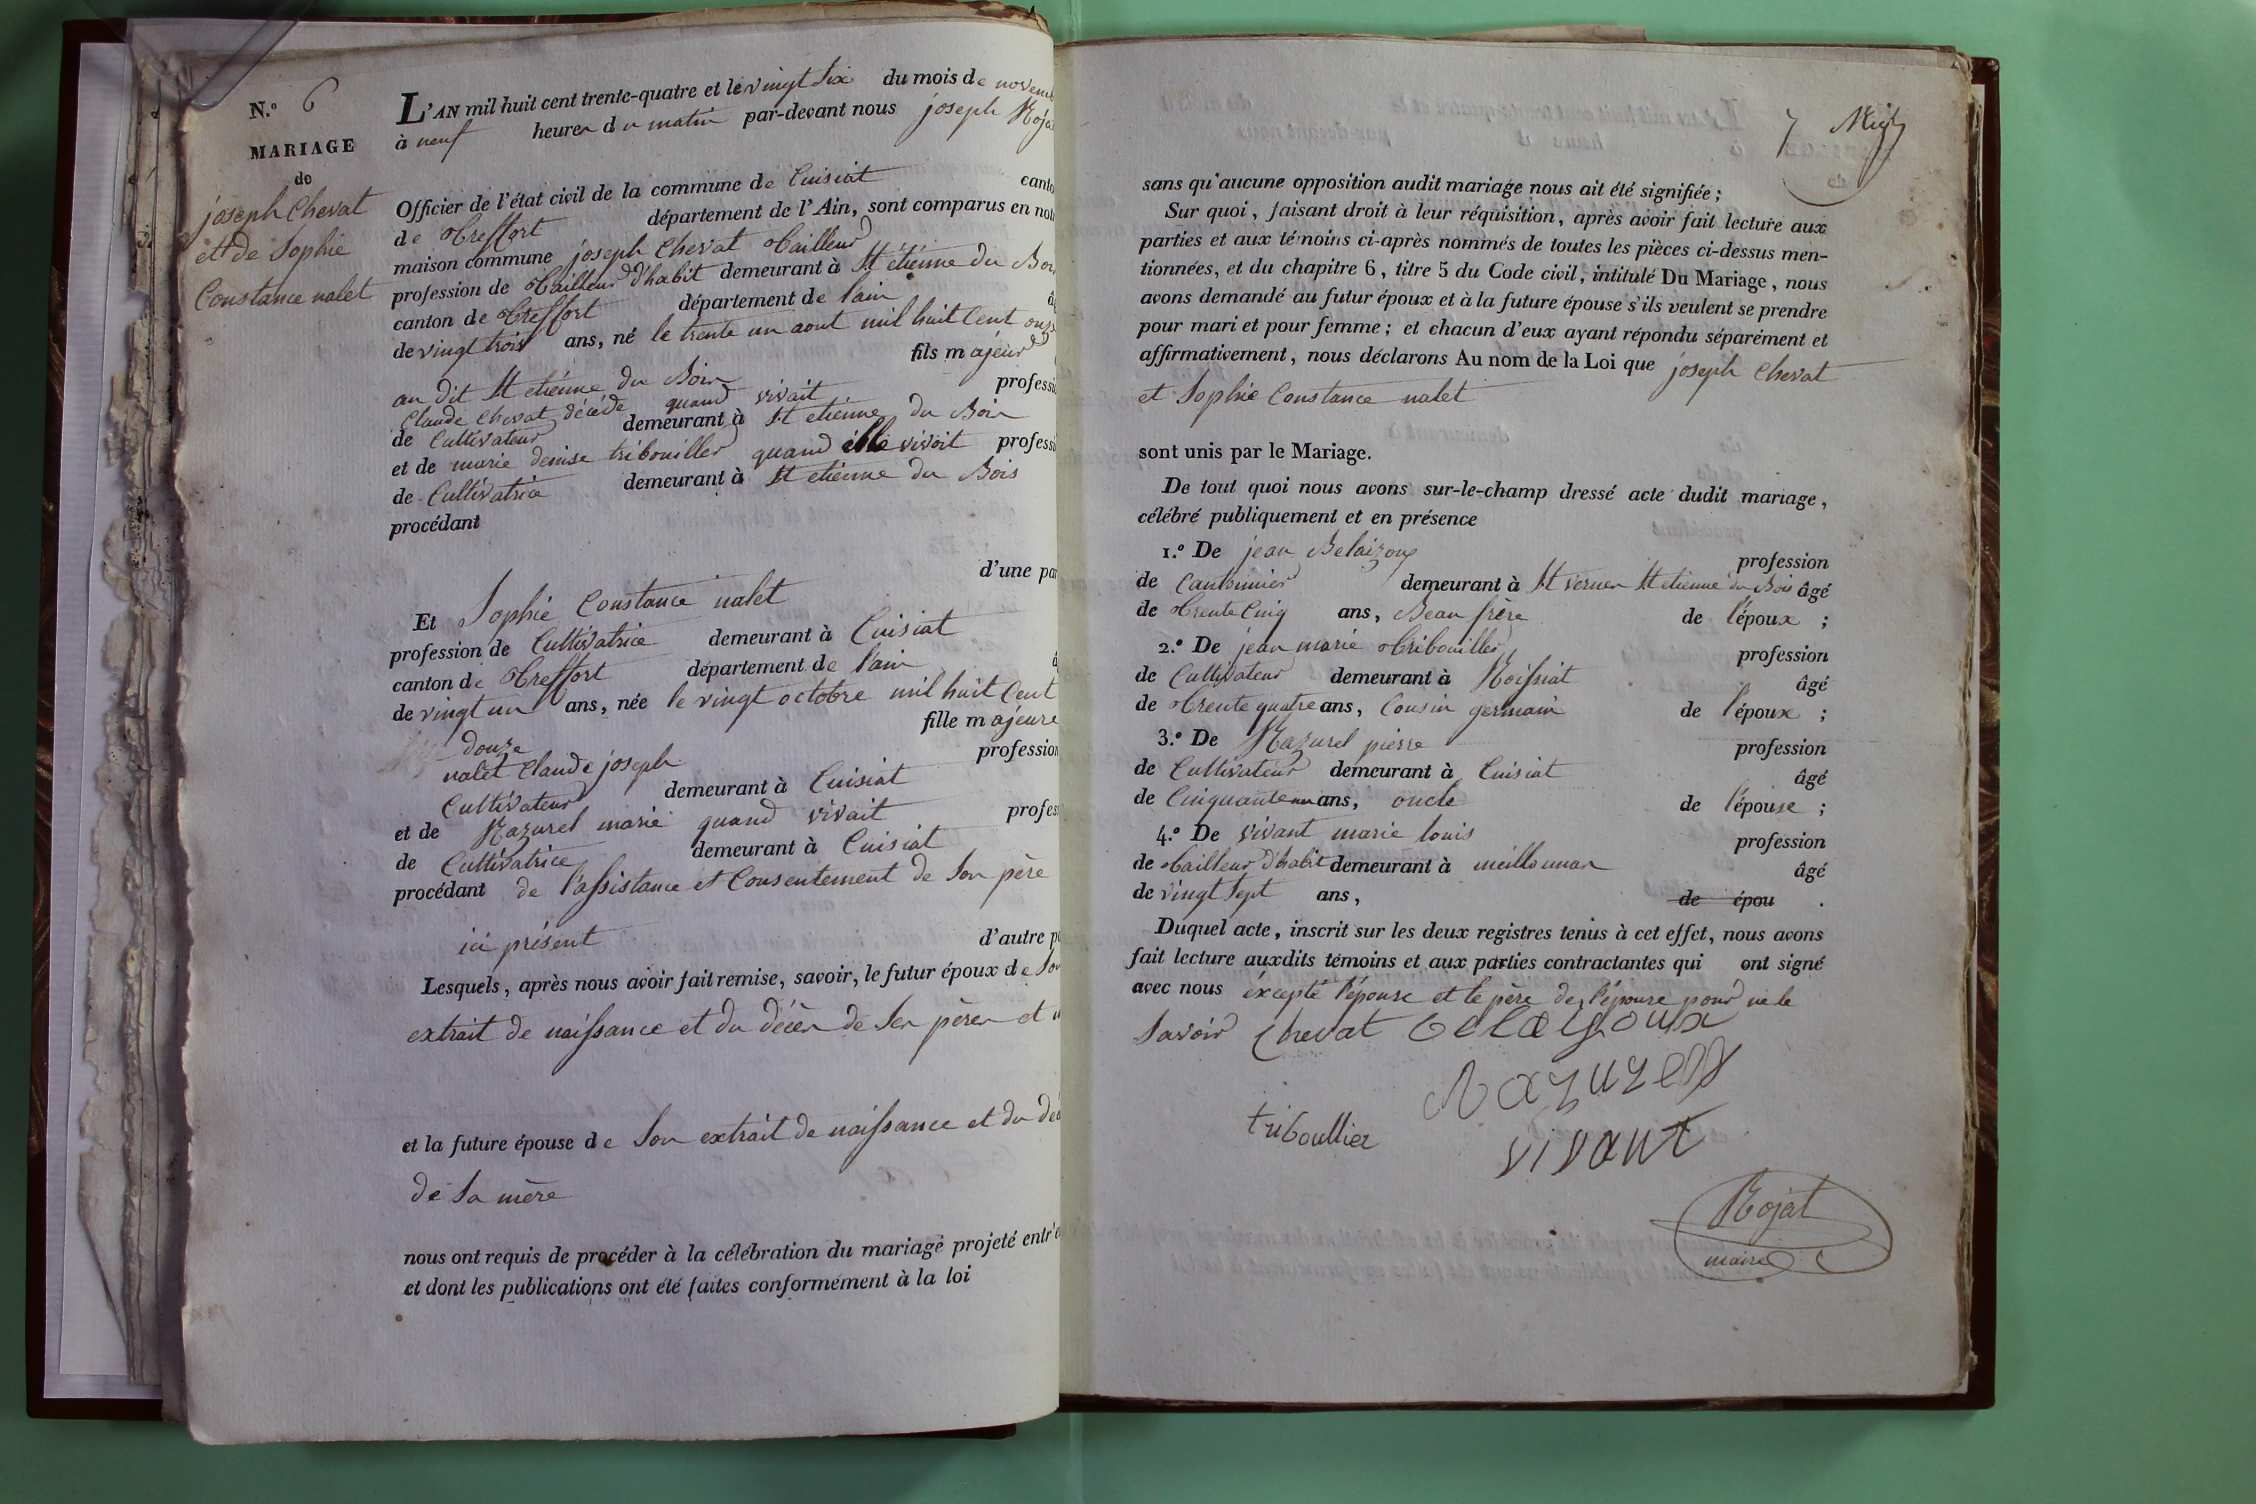 N.º 6
MARIAGE
de
joseph Chevat
et de Sophie
Constance nalet
L'AN mil huit cent trente-quatre et le vingt six du mois de novem
à neuf heures du matin par-devant nous joseph Roja
Officier de l'état civil de la commune de Cuisiat canto
de Treffort département de l'Ain, sont comparus en not
maison commune joseph Chevat Tailleur
profession de Tailleur d'habit demeurant à St étiénne du Boi
canton de Treffort département de l'ain â
de vingt trois ans, né le trente un aout mil huit Cent onz
fils majeur
au dit St etiénne du Bois
Claude Chevat décédé quand vivait professi
de Cultivateur demeurant à St etiénne du Bois
et de marie denise tribouiller quand elle vivoit profess
de Cultivatrice demeurant à St etiénne du Bois
procédant
d'une par
Et Sophie Constance nalet
profession de Cultivatrice demeurant à Cuisiat
canton de Treffort département de l'ain â
de vingt un ans, née le vingt octobre mil huit Cent
fille majeure
douze
nalet Claude joseph profession
Cultivateur demeurant à Cuisiat
et de Mazurel marie quand vivait profes
de Cultivatrice demeurant à Cuisiat
procédant de l'assistance et Consentement de Son père
ici présent d'autre p
Lesquels, après nous avoir fait remise, savoir, le futur époux de Son
extrait de naissance et du décès de Ses pères et
et la future épouse de Son extrait de naissance et du déc
de Sa mère
nous ont requis de procéder à la célébration du mariage projeté entr'e
et dont les publications ont été faites conformément à la loi
7
sans qu'aucune opposition audit mariage nous ait été signifiée;
Sur quoi, faisant droit à leur réquisition, après avoir fait lecture aux
parties et aux témoins ci-après nommés de toutes les pièces ci-dessus men-
tionnées, et du chapitre 6, titre 5 du Code civil, intitulé Du Mariage, nous
avons demandé au futur époux et à la future épouse s'ils veulent se prendre
pour mari et pour femme; et chacun d'eux ayant répondu séparément et
affirmativement, nous déclarons Au nom de la Loi que joseph Chevat
et Sophie Constance nalet
sont unis par le Mariage.
De tout quoi nous avons sur-le-champ dressé acte dudit mariage,
célébré publiquement et en présence
1.º De jean Belaizoux profession
de Cantonnier demeurant à St etienne du Bois âgé
de Trente Cinq ans, Beau frère de l'époux ;
2.º De jean marie Tribouiller profession
de Cultivateur demeurant à Roissiat âgé
de Trente quatre ans, Cousin germain de l'époux ;
3.º De Mazurel pierre profession
de Cultivateur demeurant à Cuisiat âgé
de Cinquante un ans, oncle de l'épouse ;
4.º De vivant marie louis profession
de Tailleur d'habit demeurant à meillonnas âgé
de vingt Sept ans, de épou .
Duquel acte, inscrit sur les deux registres tenus à cet effet, nous avons
fait lecture auxdits témoins et aux parties contractantes qui ont signé
avec nous éxcepté l'épouse et le père de l'épouse pour ne le
Savoir Chevat Belaizoux
Mazurel
triboullier
vivant
Rojat
maire